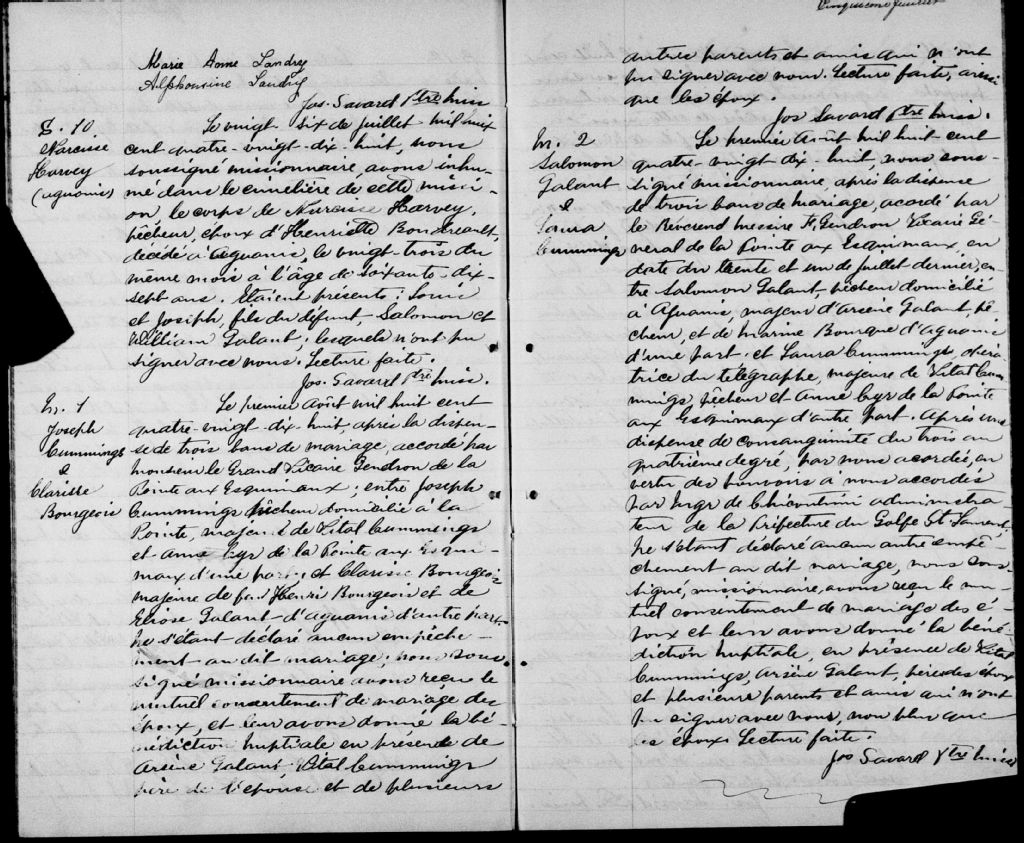 Marie Anne Landry
Alphonsine Landry
Jos. Savard Ptre miss
S. 10
Narcisse
Harvey
(aguanis)
Le vingt-six de juillet mil huit
cent quatre-vingt-dix-huit, nous
soussigné missionnaire, avons inhu-
mé dans le cimetière de cette missi-
on, le corps de Narcisse Harvey,
pêcheur, époux d'Henriette Boudreault,
décédé à Aguanis, le vingt-trois du
même mois à l'âge de soixante-dix-
sept ans. Etaient présents: Louis
et Joseph, fils du défunt, Salomon et
William Galant, lesquels n'ont pu
signer avec nous. Lecture faite.
Jos. Savard Ptre miss.
M. 1
Joseph
Cummings
&
Clarisse
Bourgeois
Le premier Août mil huit cent
quatre-vingt-dix-huit, après la dispen-
se de trois bans de mariage, accordé par
monsieur le Grand Vicaire Gendron de la
Pointe aux Esquimaux; entre Joseph
Cummings pêcheur domicilié à la
Pointe, majeur de Vital Cummings
et Anne Cyr de la Pointe aux Esqui-
maux d'une part, et Clarisse Bourgeois
majeure de feu Henri Bourgeois et de
Eliose Galant d'aguanis d'autre part
ne s'étant déclaré aucun empêche-
ment au dit mariage; nous sous-
signé missionnaire avons reçu le
mutuel consentement de mariage des
époux, et leur avons donné la bé
nédiction nuptiale en présence de
Arsène Galant, Vital Cummings
père de l'épouse et de plusieurs
Cinquième feuillet
autres parents et amis qui n'ont
pu signer avec nous. Lecture faite, ainsi
que les époux.
Jos Savard Ptre miss.
M. 2
Salomon
Galant
&
Laura
Cummings
Le premier Août mil huit cent
quatre-vingt-dix-huit, nous sous-
signé missionnaire, après la dispense
de trois bans de mariage, accordé par
le Révérend messire F. Gendron Vicaire Gé-
néral de la Pointe aux Esquimaux, en
date du trente et un de juillet dernier, en-
tre Salomon Galant, pêcheur domicilié
à Aguanis, majeur d'Arsène Galant, pê-
cheur, et de Marine Bourque d'Aguanis
d'une part et Laura Cummings, opéra-
trice du télégraphe, majeure de Vital Cum-
mings, pêcheur et Anne Cyr de la Pointe
aux Esquimaux d'autre part. Après une
dispense de consanguinité du trois au
quatrième degré, par nous accordés, en
vertu des pouvoirs à nous accordés
par Mgr de Chicoutimi administra-
teur de la Préfecture du Golfe St Laurent,
ne s'étant déclaré aucun autre empê-
chement au dit mariage, nous sous-
signé, missionnaire, avons reçu le mu-
tuel consentement de mariage des é-
poux et leur avons donné la béné-
diction nuptiale, en présence de Vital
Cummings, Arsène Galant, pères des époux
et plusieurs parents et amis qui n'ont
pu signer avec nous, non plus que
les époux. Lecture faite.
Jos Savard Ptre miss